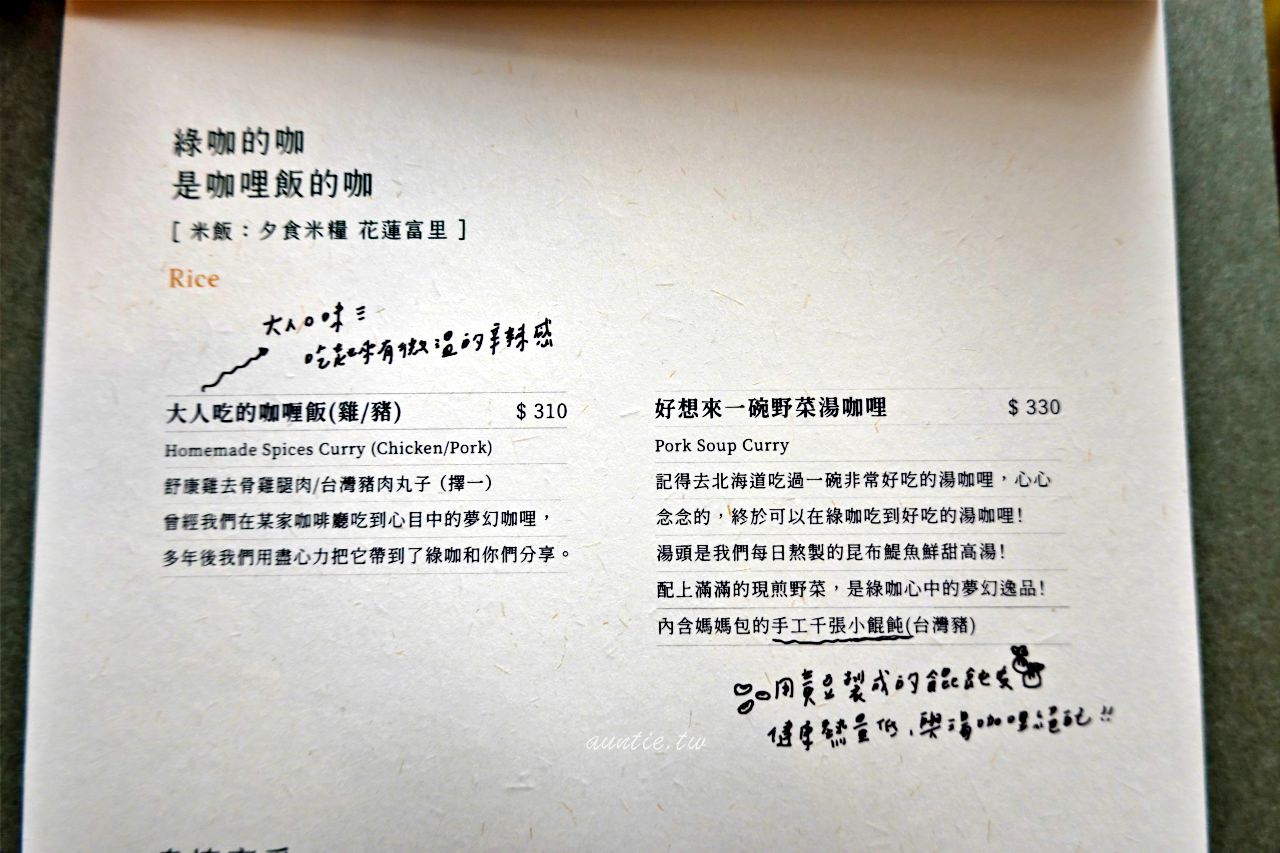 綠咖的咖
是咖哩飯的咖
[ 米飯：夕食米糧 花蓮富里 ]
Rice
大人口味
吃起來有微溫的辛辣感
大人吃的咖喱飯(雞/豬) $ 310
Homemade Spices Curry (Chicken/Pork)
舒康雞去骨雞腿肉/台灣豬肉丸子（擇一）
曾經我們在某家咖啡廳吃到心目中的夢幻咖哩，
多年後我們用盡心力把它帶到了綠咖和你們分享。
好想來一碗野菜湯咖哩 $ 330
Pork Soup Curry
記得去北海道吃過一碗非常好吃的湯咖哩，心心
念念的，終於可以在綠咖吃到好吃的湯咖哩！
湯頭是我們每日熬製的昆布鯷魚鮮甜高湯！
配上滿滿的現煎野菜，是綠咖心中的夢幻逸品！
內含媽媽包的手工千張小餛飩(台灣豬)
用黃豆製成的餛飩皮
健康熱量低、與湯咖哩絕配!!
auntie.tw